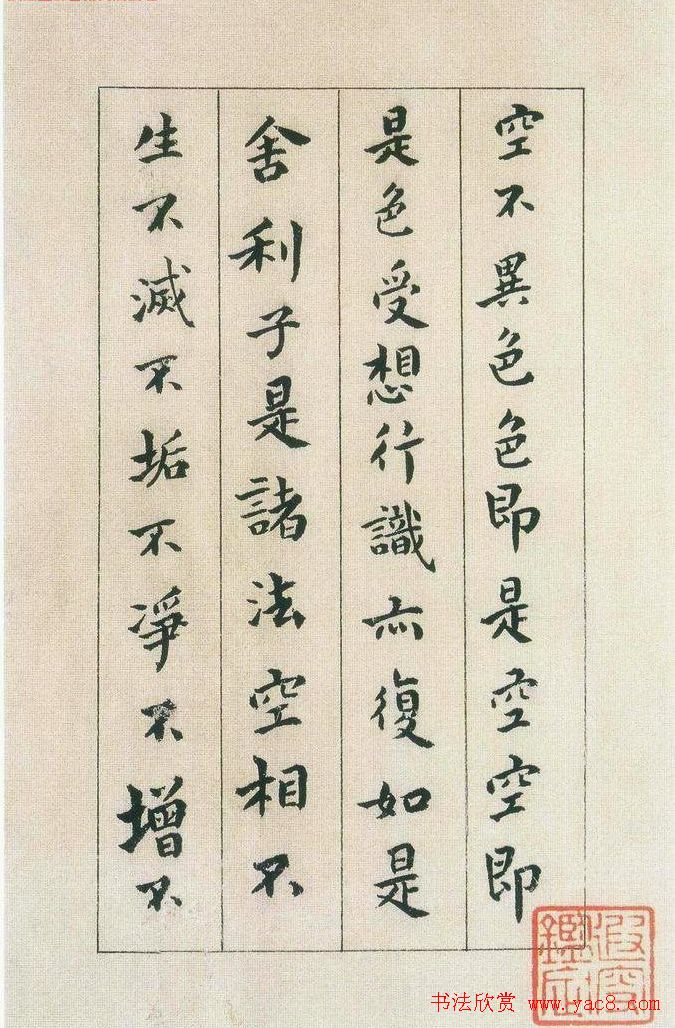 空不異色色即是空空即
是色受想行識亦復如是
舍利子是諸法空相不
生不滅不垢不淨不增不
书法欣赏 www.yac8.com